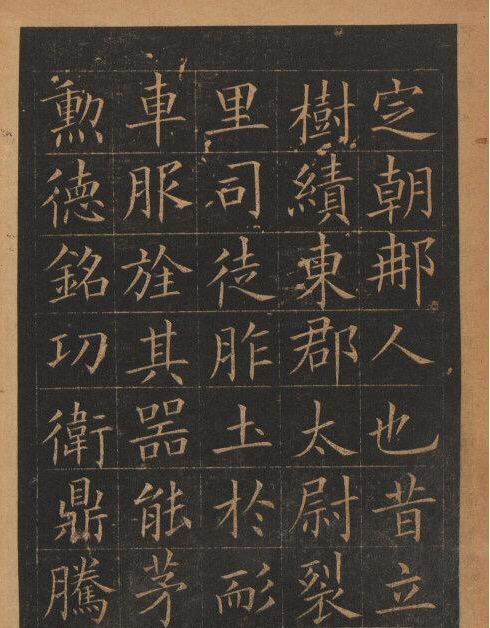 定朝那人也昔立
樹績東郡太尉裂
里司徒胙土於耏
車服旌其器能茅
勳德銘功衛鼎騰